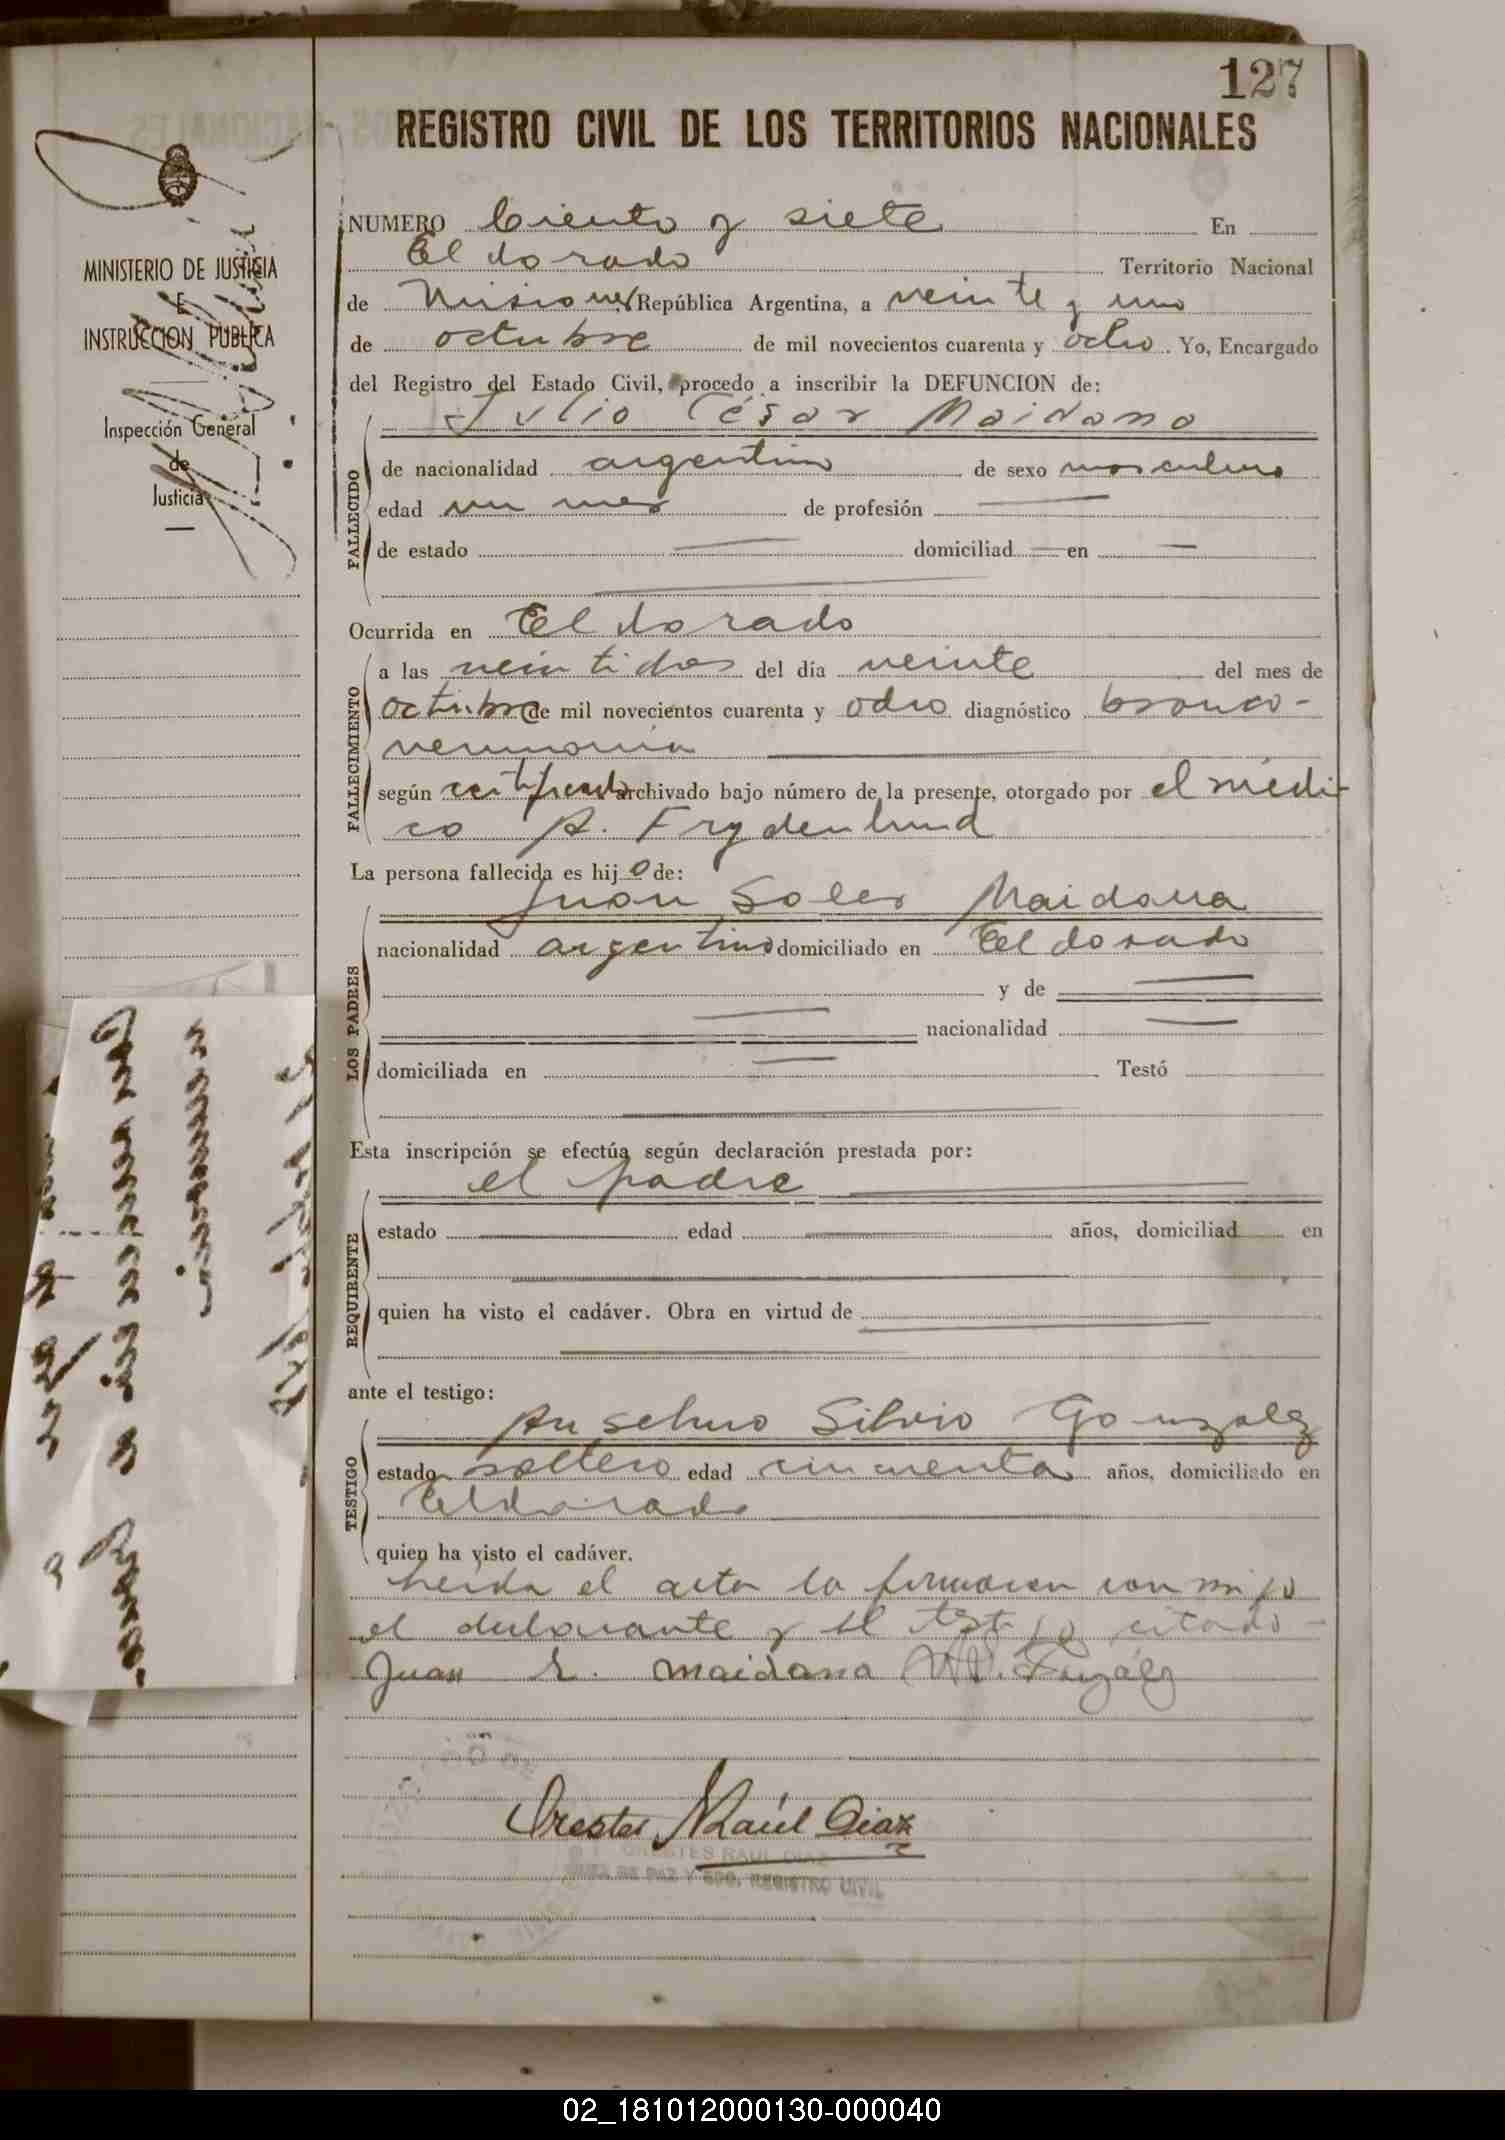 127
REGISTRO CIVIL DE LOS TERRITORIOS NACIONALES
MINISTERIO DE JUSTICIA
E
INSTRUCCION PUBLICA
Inspección General
de
Justicia
NUMERO Ciento y siete En
Eldorado Territorio Nacional
de Misiones República Argentina, a veinte y uno
de octubre de mil novecientos cuarenta y ocho. Yo, Encargado
del Registro del Estado Civil, procedo a inscribir la DEFUNCION de:
Julio César Maidana
FALLECIDO
de nacionalidad argentino de sexo masculino
edad un mes de profesión —
de estado — domiciliad — en —
Ocurrida en Eldorado
FALLECIMIENTO
a las veintidos del día veinte del mes de
octubre de mil novecientos cuarenta y ocho diagnóstico bronco-
neumonia
según certificado archivado bajo número de la presente, otorgado por el médi-
co A. Frydenlund
La persona fallecida es hijo de:
Juan Soler Maidana
LOS PADRES
nacionalidad argentino domiciliado en Eldorado
y de —
— nacionalidad —
domiciliada en — Testó
Esta inscripción se efectúa según declaración prestada por:
el padre
REQUIRENTE
estado — edad — años, domiciliad en
quien ha visto el cadáver. Obra en virtud de —
ante el testigo:
Anselmo Silvio Gonzalez
TESTIGO
estado soltero edad cincuenta años, domiciliado en
Eldorado
quien ha visto el cadáver.
Leida el acta la firmaron conmigo
el declarante y el testigo citado-
Juan S. Maidana
Orestes Raúl Diaz
ORESTES RAUL DIAZ
JUEZ DE PAZ Y EDO. REGISTRO CIVIL
02_181012000130-000040